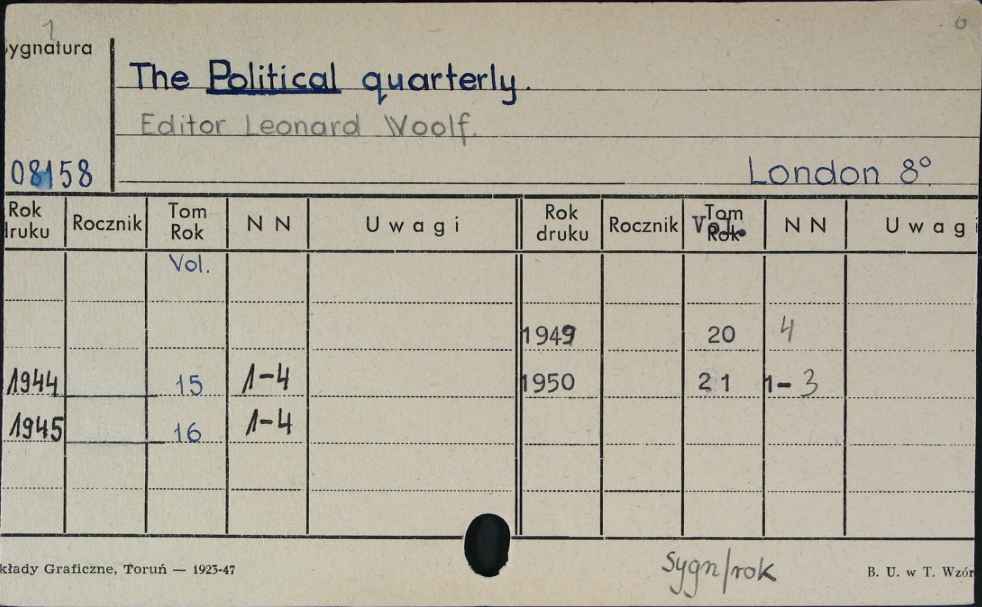 ygnatura
The Political quarterly.
Editor Leonard Woolf.
08158
London 8°
Rok druku Rocznik Tom Rok NN Uwagi Rok druku Rocznik Tom Rok Vol. NN Uwagi
Vol.
1949 20 4
1944 15 1-4 1950 21 1-3
1945 16 1-4
kłady Graficzne, Toruń — 1923-47
Sygn/rok
B. U. w T. Wzór